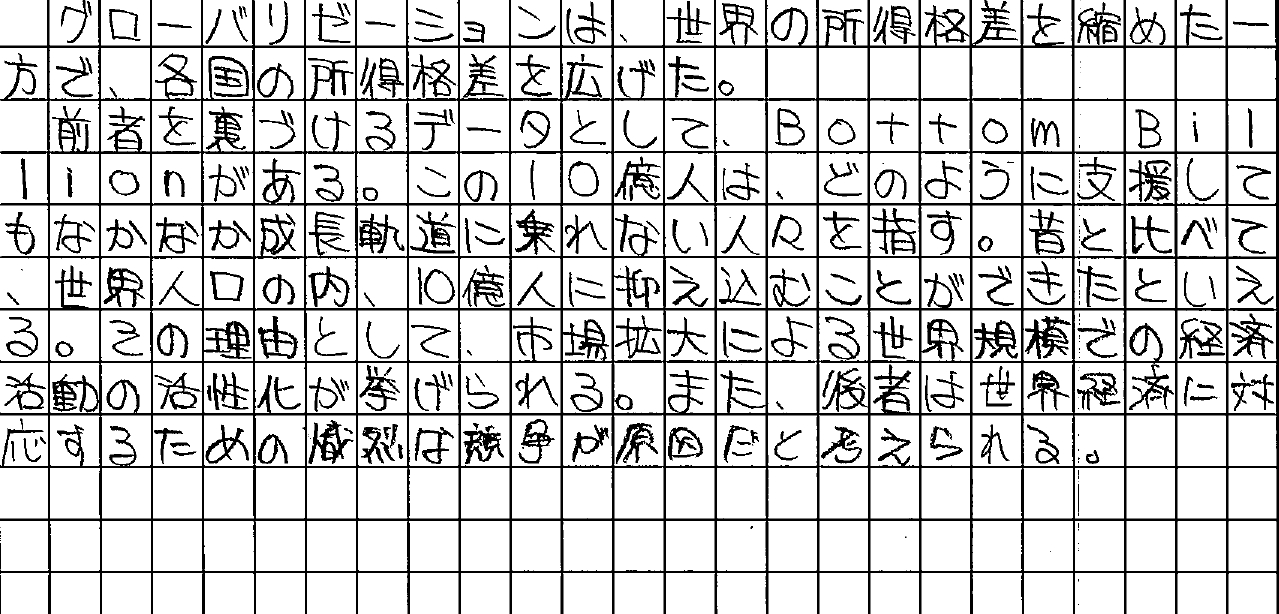 グローバリゼーションは、世界の所得格差を縮めた一
方で、各国の所得格差を広げた。
前者を裏づけるデータとして、Bottom Bil
lionがある。この10億人は、どのように支援して
もなかなか成長軌道に乗れない人々を指す。昔と比べて
、世界人口の内、10億人に抑え込むことができたといえ
る。その理由として、市場拡大による世界規模での経済
活動の活性化が挙げられる。また、後者は世界経済に対
応するための熾烈な競争が原因だと考えられる。